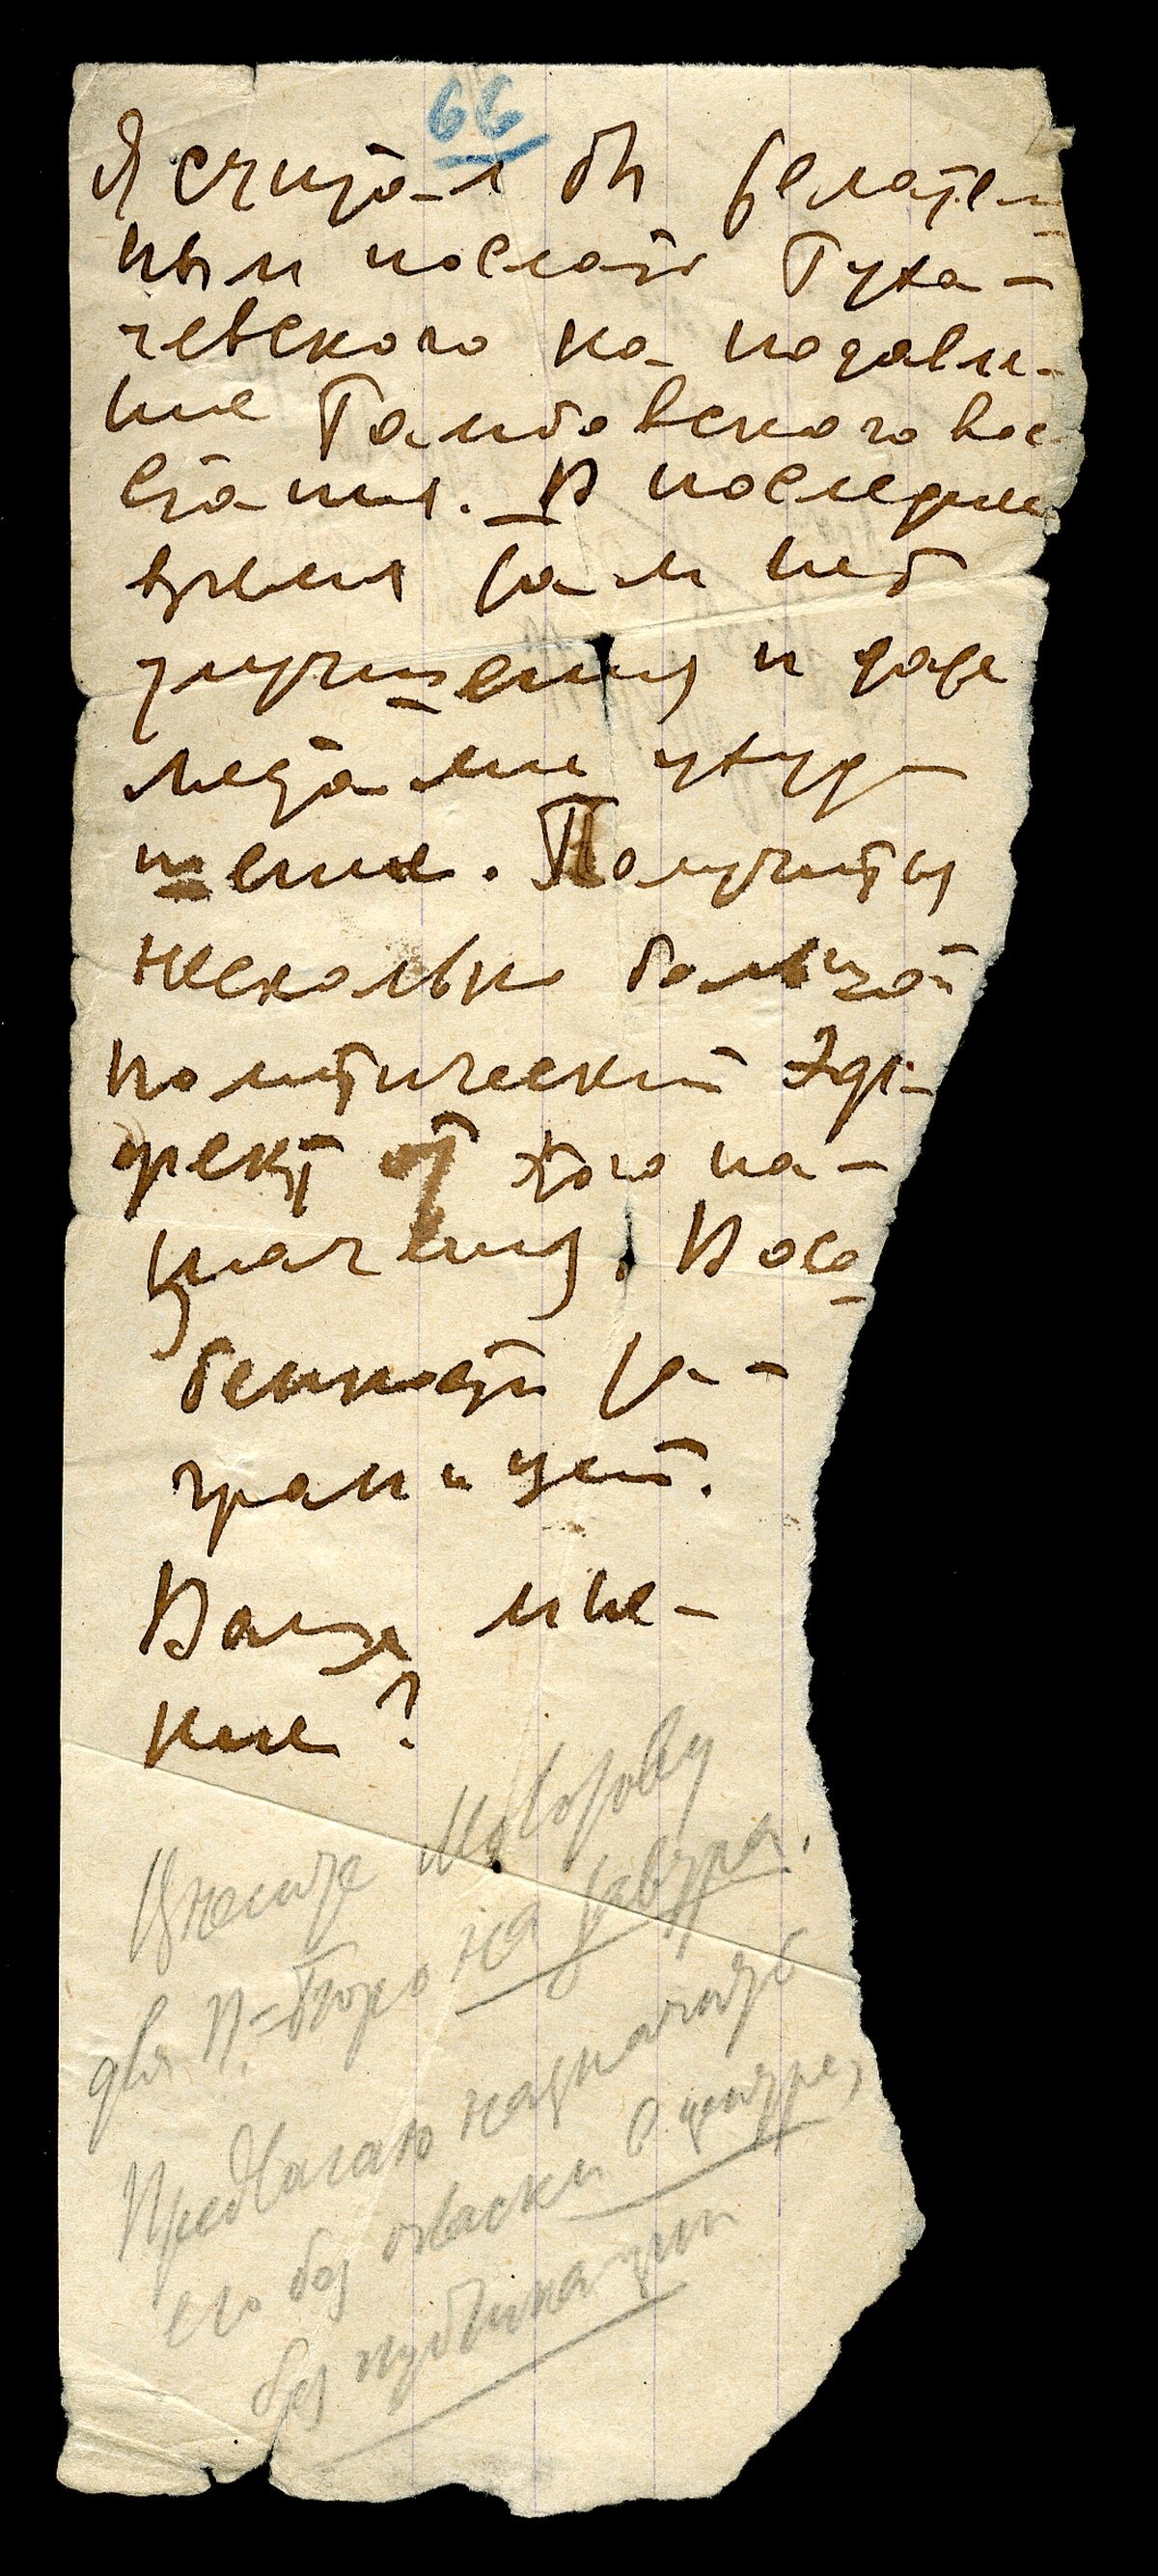 66
Я считал бы желатель
ным послать Туха-
чевского на подавле-
ние Тамбовского вос
стания. В последнее
время там нет
улучшения и даже
местами ухуд-
шение. Получится
несколько больший
политический эф-
фект от этого на-
значения. В осо
бенности за-
границей.
Ваше мне-
ние?
Внесите Молотову
для П.-бюро на завтра.
Предлагаю назначить
его без огласки в центре,
без публикации